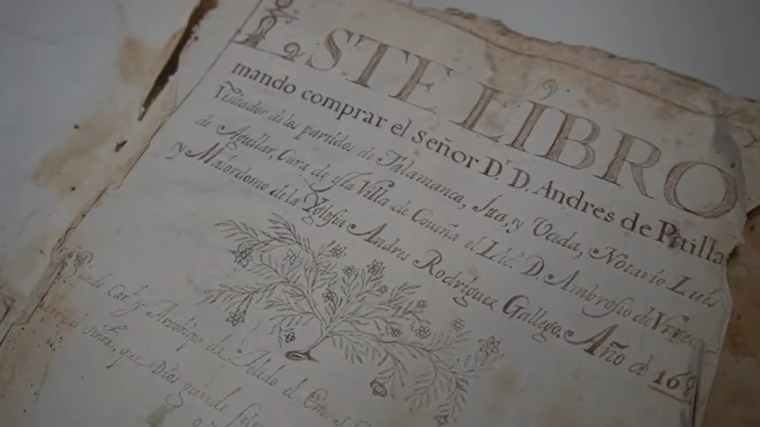 ESTE LIBRO
mando comprar el Señor D.r D. Andres de Pitilla
Visitador de los partidos de Talamanca, Ita, y Uceda, Notario Luis
de Aguilar, Cura de esta Villa de el Lic.o D. Ambrosio de
y Maiordomo de la Yglesia Andres Rodriguez Gallego. Año de 16
Siendo Arzobispo de Toledo el Em.
señor, que Dios guarde